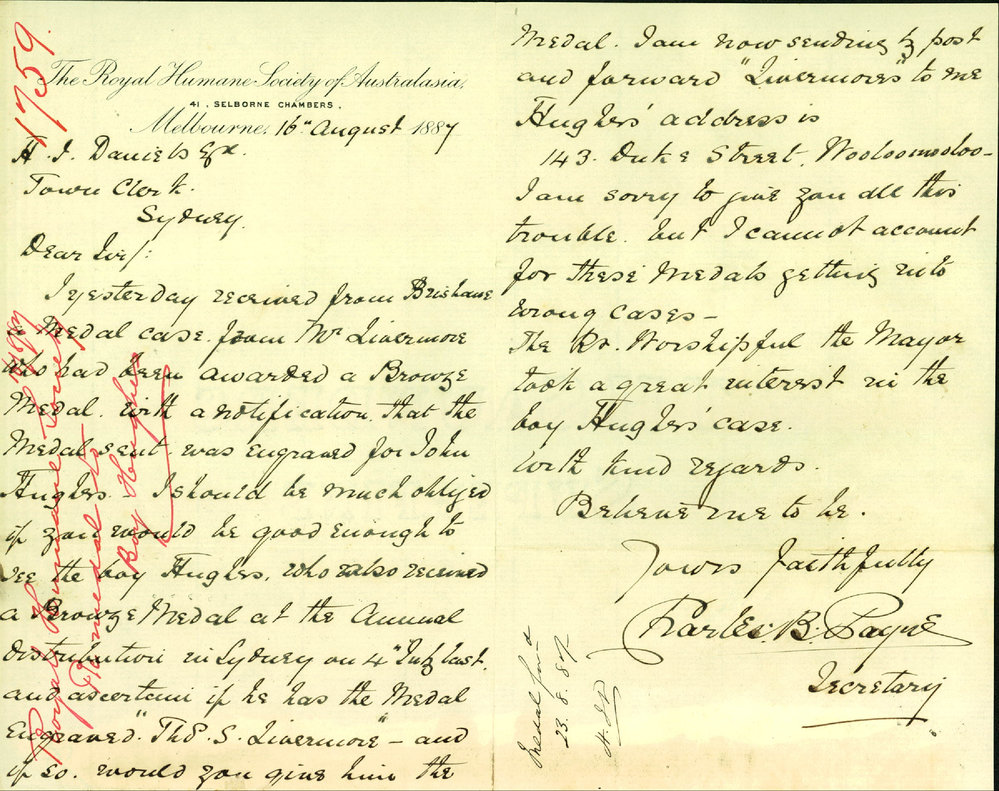 1759.
The Royal Humane Society of Australasia,
41, SELBORNE CHAMBERS.
Melbourne, 16th August 1887
H. J. Daniels Esqr.
Town Clerk.
Sydney.
Dear Sir/:
I yesterday received from Brisbane
a Medal case from Mr Livermore
who had been awarded a Bronze
Medal. with a notification that the
Medal sent was engraved for John
Hughes. I should be much obliged
if you would be good enough to
see the boy Hughes, who also received
a Bronze Medal at the Annual
Distribution in Sydney on 4th July last.
and ascertain if he has the Medal
Engraved "Thos. S. Livermore" – and
if so. would you give him the
Medal. I am now sending by post
and forward "Livermore's" to me
Hughes' address is
143. Duke Street, Wooloomooloo–
I am sorry to give you all this
trouble. but I cannot account
for these Medals getting into
wrong cases –
The Rt. Worshipful the Mayor
took a great interest in the
boy Hughes' case.
With kind regards.
Believe me to be.
Yours faithfully
Charles. B. Payne
Secretary
Royal Humane Society
Medal to
Boy Hughes
Medal
23.8.87.